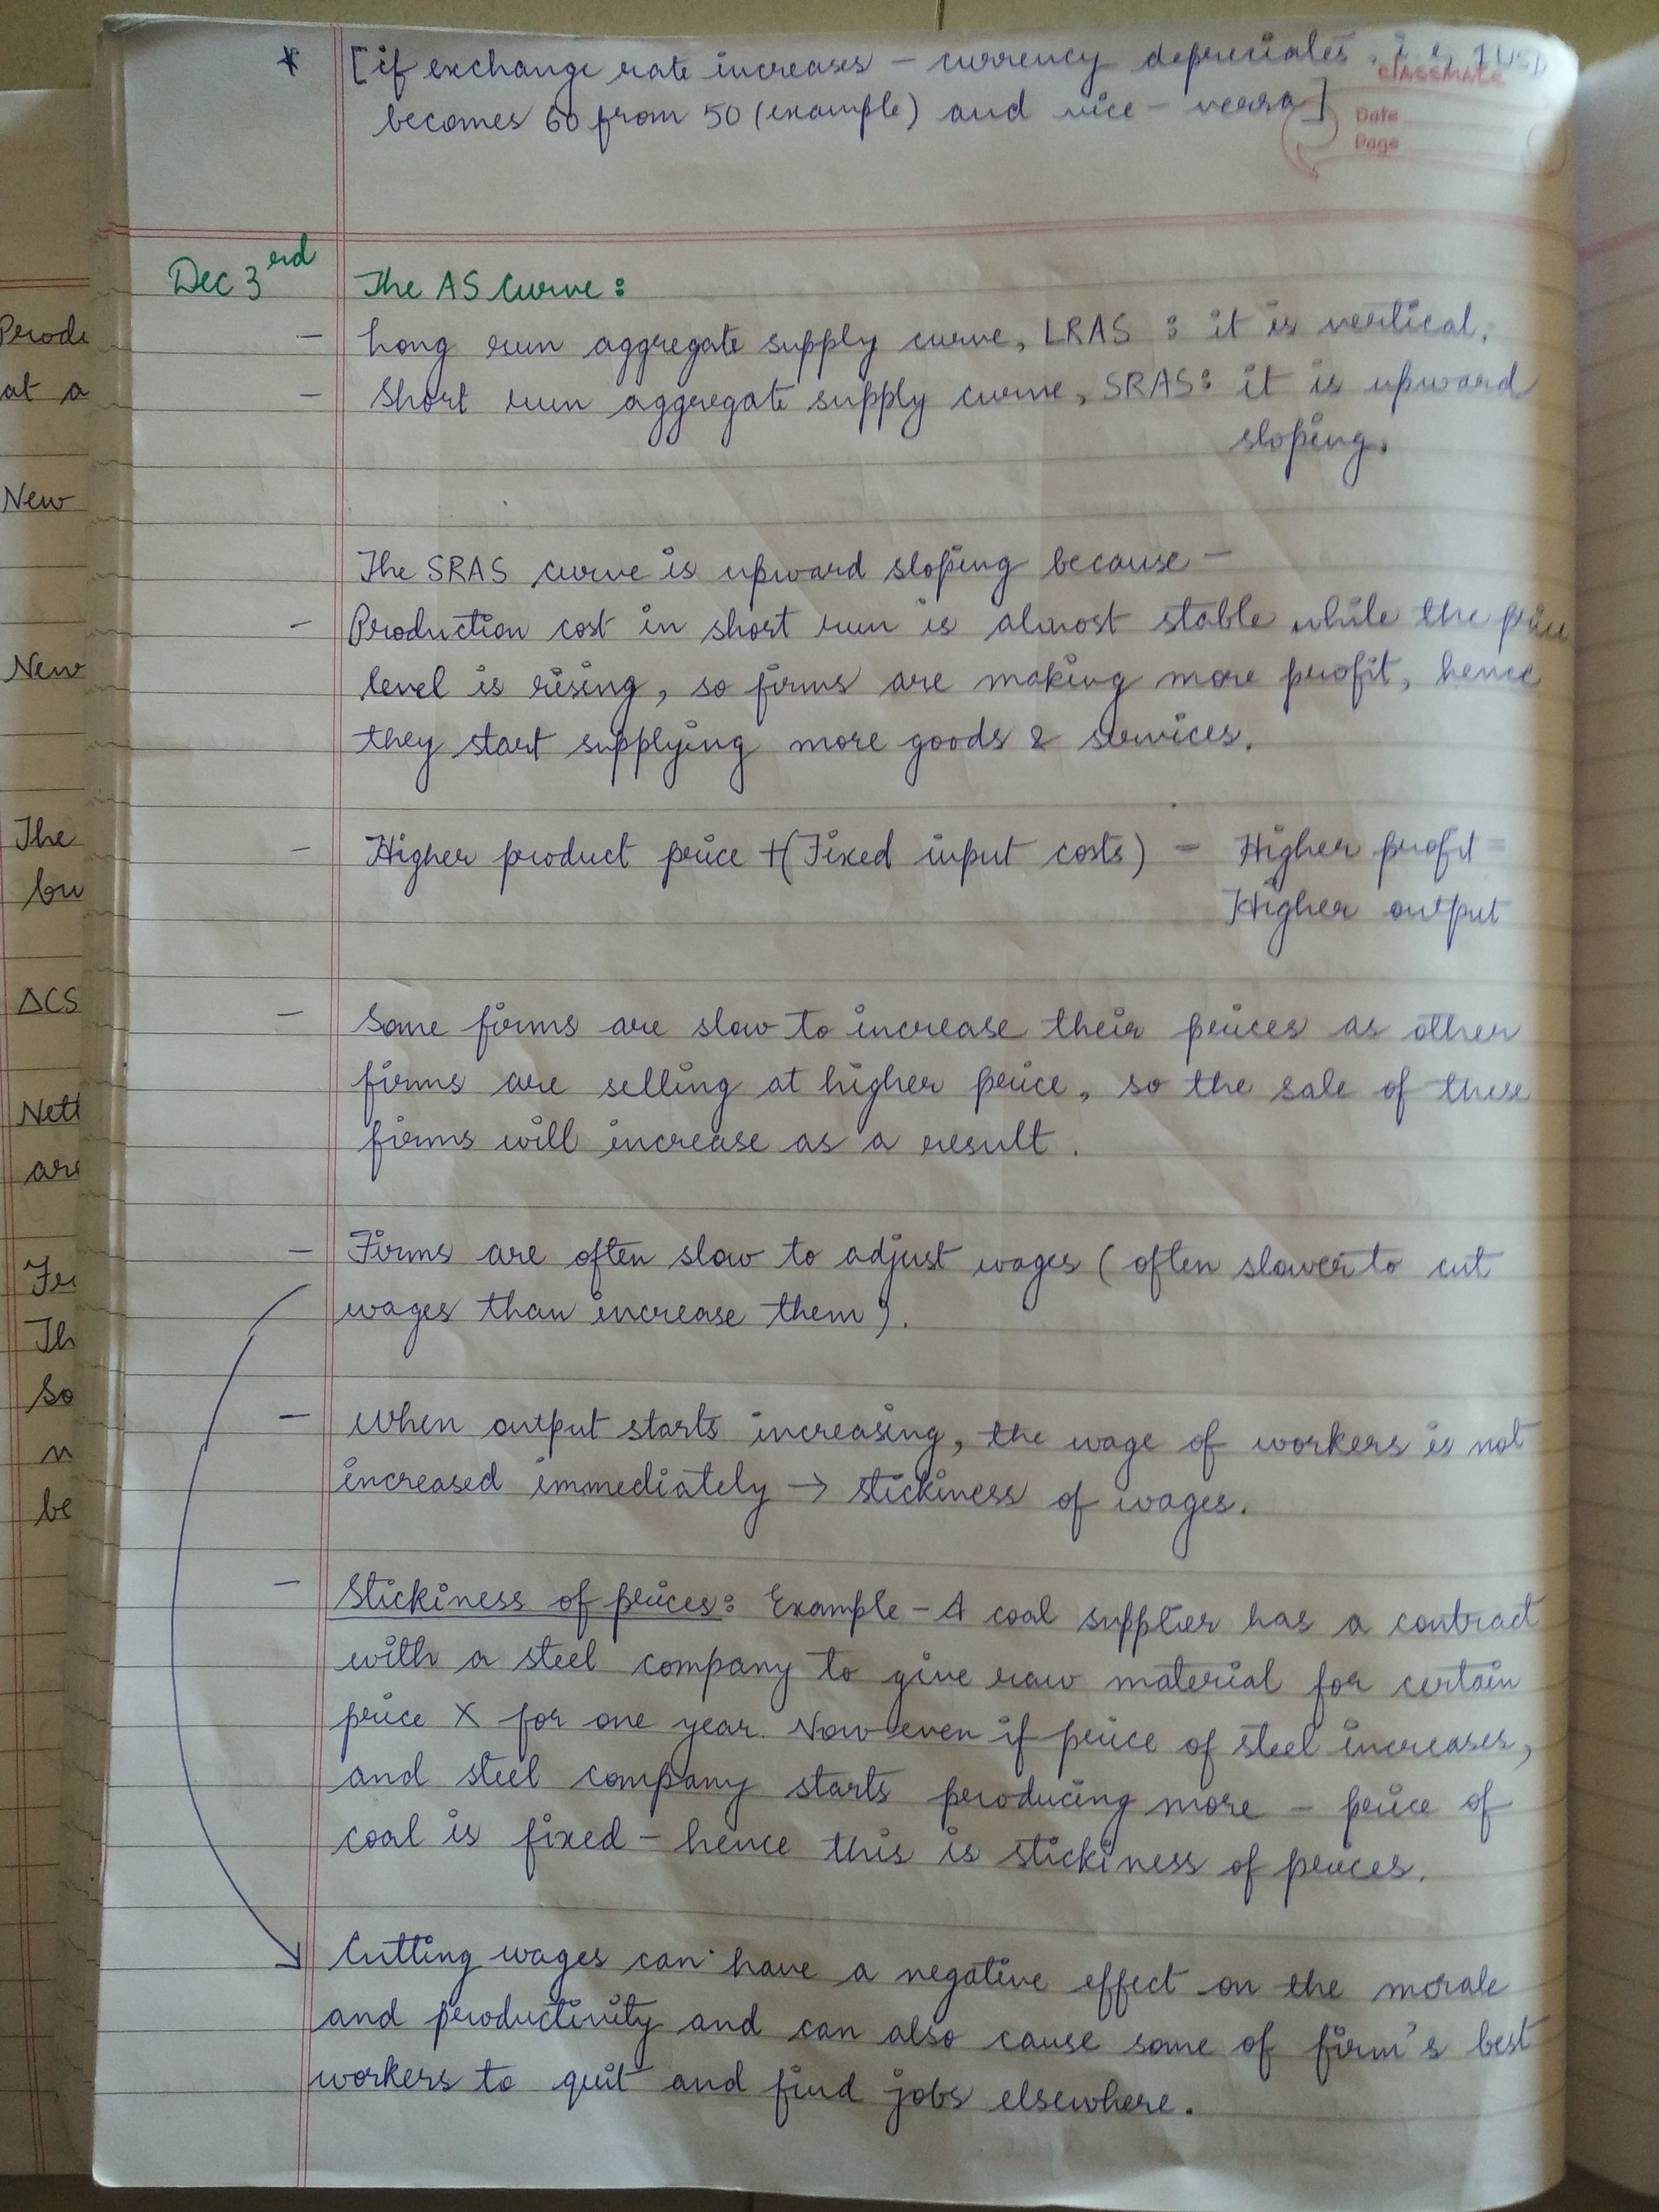 * [if exchange rate increases – currency depreciates, i.e, 1 USD
classmate
becomes 60 from 50 (example) and vice – versa]
Date
Page
Dec 3rd The AS Curve:
– Long run aggregate supply curve, LRAS : it is vertical.
– Short run aggregate supply curve, SRAS: it is upward
sloping.
The SRAS curve is upward sloping because –
- Production cost in short run is almost stable while the price
level is rising, so firms are making more profit, hence
they start supplying more goods & services.
- Higher product price + (Fixed input costs) = Higher profit =
Higher output
- Some firms are slow to increase their prices as other
firms are selling at higher price, so the sale of these
firms will increase as a result.
- Firms are often slow to adjust wages (often slower to cut
wages than increase them).
- When output starts increasing, the wage of workers is not
increased immediately → stickiness of wages.
- Stickiness of prices: Example – A coal supplier has a contract
with a steel company to give raw material for certain
price X for one year. Now even if price of steel increases,
and steel company starts producing more – price of
coal is fixed – hence this is stickiness of prices.
Cutting wages can have a negative effect on the morale
and productivity and can also cause some of firm's best
workers to quit and find jobs elsewhere.
at a
New
New
The
bu
ΔCS
Th
So
be